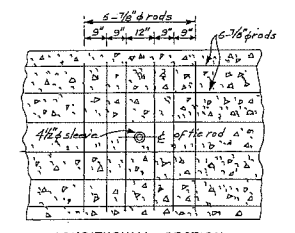 6-7/8" ⌀ rods
9" 9" 12" 9" 9"
6-7/8" ⌀ rods
4½" ⌀ sleeve ℄ of tie rod